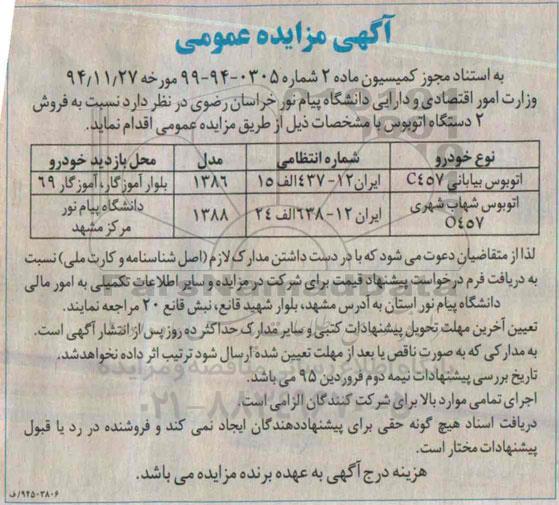 آگهی مزایده عمومی
به استناد مجوز کمیسیون ماده ۲ شماره ۰۳۰۵-۹۴-۹۹ مورخه ۹۴/۱۱/۲۷
وزارت امور اقتصادی و دارایی دانشگاه پیام نور خراسان رضوی در نظر دارد نسبت به فروش
۲ دستگاه اتوبوس با مشخصات ذیل از طریق مزایده عمومی اقدام نماید.
نوع خودرو شماره انتظامی مدل محل بازدید خودرو
اتوبوس بیابانی C457 ایران ۱۲-۴۳۷الف ۱۵ ۱۳۸۶ بلوار آموزگار، آموزگار ۶۹
اتوبوس شهاب شهری O457 ایران ۱۲-۶۳۸الف ۲۴ ۱۳۸۸ دانشگاه پیام نور مرکز مشهد
لذا از متقاضیان دعوت می شود که با در دست داشتن مدارک لازم (اصل شناسنامه و کارت ملی) نسبت
به دریافت فرم درخواست پیشنهاد قیمت برای شرکت در مزایده و سایر اطلاعات تکمیلی به امور مالی
دانشگاه پیام نور استان به آدرس مشهد، بلوار شهید قانع، نبش قانع ۲۰ مراجعه نمایند.
تعیین آخرین مهلت تحویل پیشنهادات کتبی و سایر مدارک حداکثر ده روز پس از انتشار آگهی است.
به مدارکی که به صورت ناقص یا بعد از مهلت تعیین شده ارسال شود ترتیب اثر داده نخواهد شد.
تاریخ بررسی پیشنهادات نیمه دوم فروردین ۹۵ می باشد.
اجرای تمامی موارد بالا برای شرکت کنندگان الزامی است.
دریافت اسناد هیچ گونه حقی برای پیشنهاددهندگان ایجاد نمی کند و فروشنده در رد یا قبول
پیشنهادات مختار است.
هزینه درج آگهی به عهده برنده مزایده می باشد.
۹۴۵۰۳۸۰۶/ف